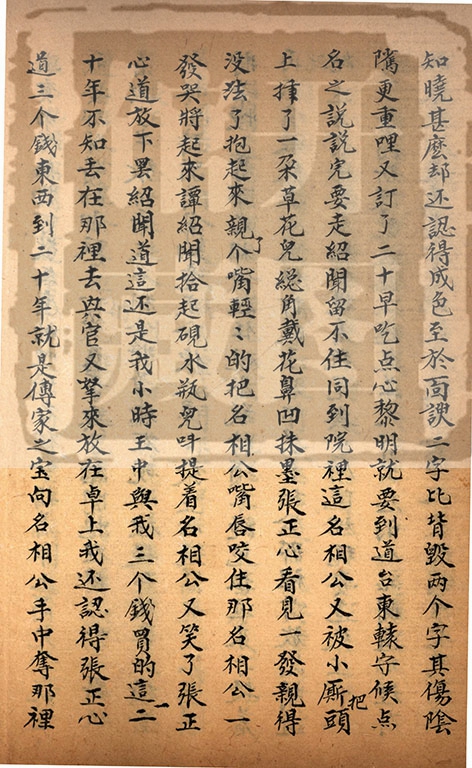 知曉甚麽却还認得成色至於面諛二字比背毀两个字其傷陰
隲更重哩又訂了二十早吃点心黎明就要到道台東轅守候点
名之説説完要走紹聞留不住同到院裡這名相公又被小厮頭把
上揷了一朶草花兒総角戴花鼻凹抹墨張正心看見一發親得
没法了抱起來親了个嘴輕〻的把名相公嘴唇咬住那名相公一
發哭將起來譚紹聞拾起硯水瓶兒呌提着名相公又笑了張正
心道放下罢紹聞道這还是我小時王中與我三个錢買的這一二
十年不知丢在那裡去與官又拏來放在卓上我还認得張正心
道三个錢東西到二十年就是傳家之宝向名相公手中奪那裡